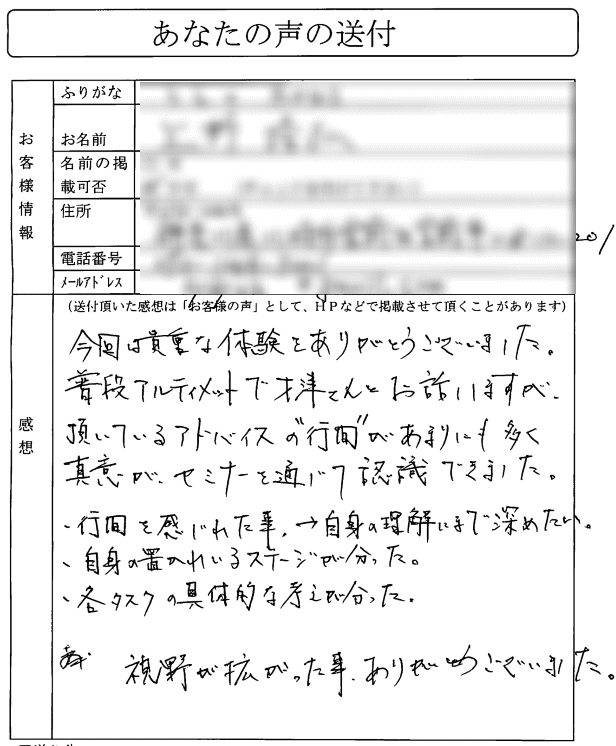 あなたの声の送付
お客様情報
ふりがな
お名前
名前の掲
載可否
住所
201
電話番号
メールアドレス
感想
(送付頂いた感想は「お客様の声」として、HPなどで掲載させて頂くことがあります)
今回は貴重な体験をありがとうございました。
普段アルティメットで才津さんとお話しますが、
頂いているアドバイスの"行間"があまりにも多く
真意が、セミナーを通じて認識できました。
・行間を感じれた事、→自身の理解にまで深めたい。
・自身の置かれいるステージが分った。
・各タスクの具体的な考えが分った。
視野が拡がった事、ありがとうございました。